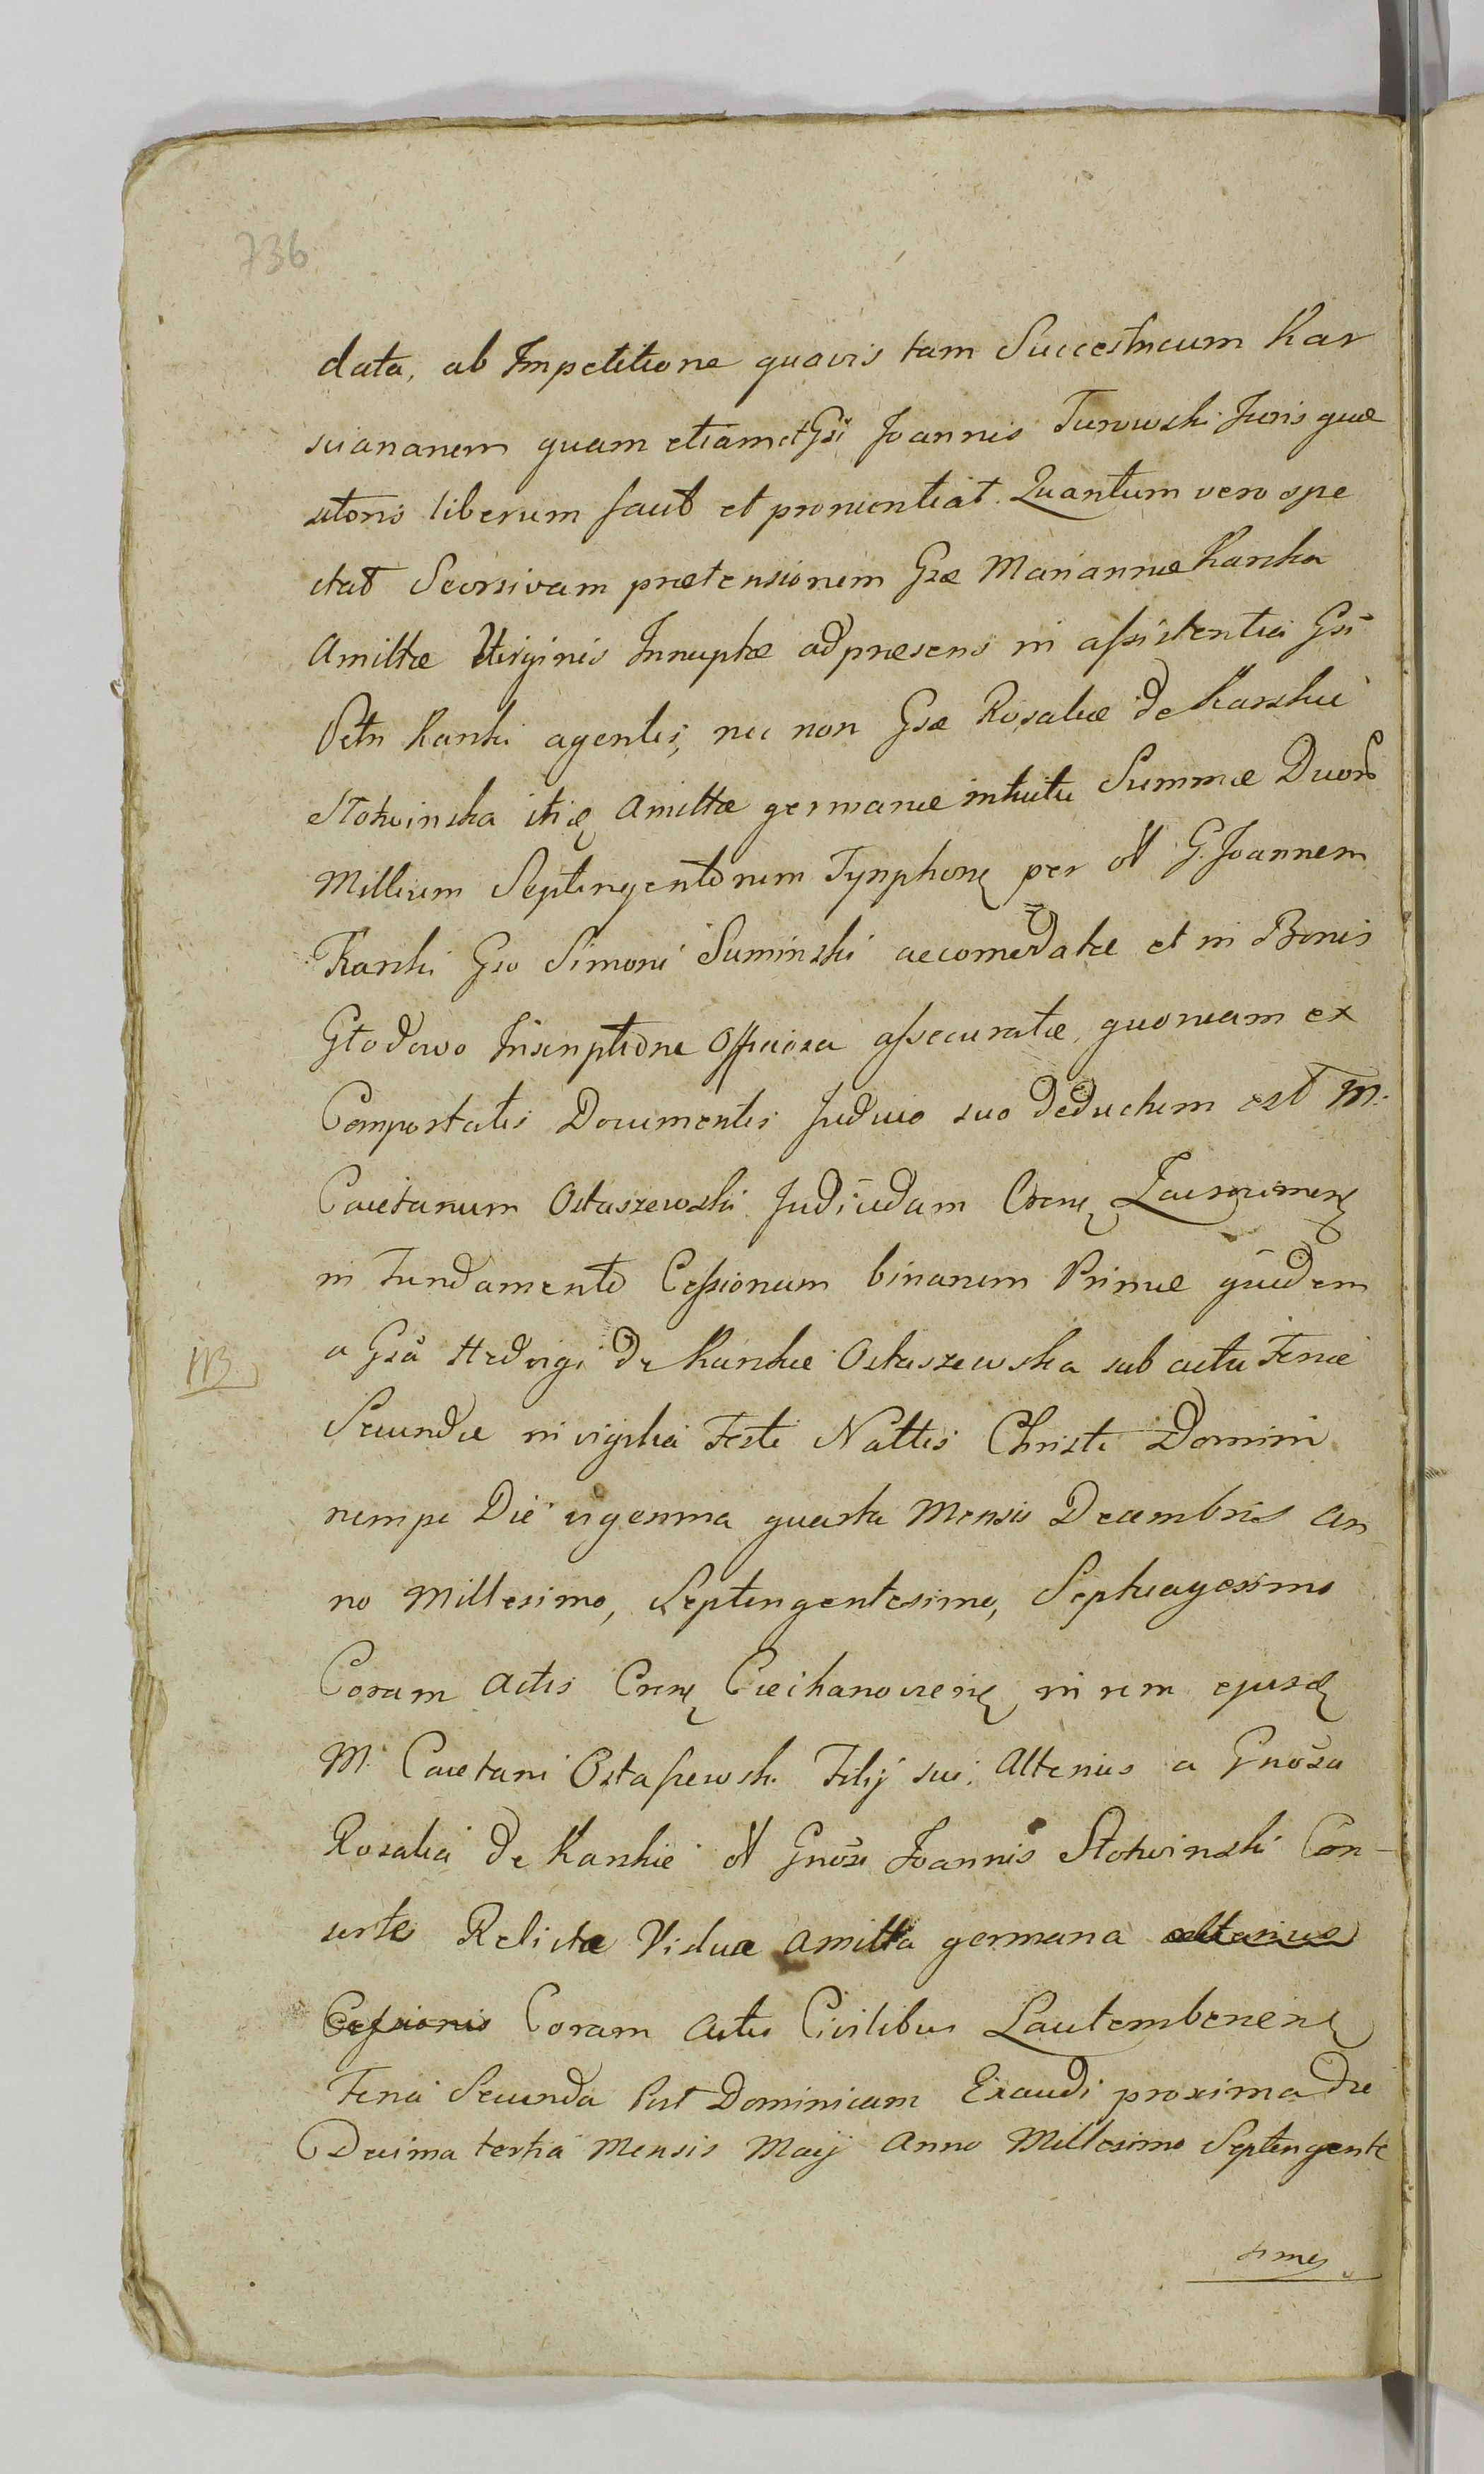 736
data, ab Impetitione quavis tam Successricum Kar
sciananem quam etiam et Gsi Joannis Turowski Juris quæ
sitoris liberum facit et pronuntiat. Quantum vero spe
ctat Seorsivam prætensionem Gsæ Mariannæ Karska
Amittæ Virginis Innuptæ ad præsens in assistentia Gsi
Petri Karski agentis, nec non Gsæ Rosaliæ de Karskie
Stotwinska itię Amittæ germanæ intuitu Summæ Duor
Millium Septingentorum Tynphonę per ol G. Joannem
Karski Gso Simoni Suminski accomodatæ et in Bonis
Głodowo Inscriptione Officiosa assecuratæ, quoniam ex
Comportatis Documentis Judicio suo deductum est M.
Caietanum Ostaszewski Judicem Crenę
in Fundamento Cessionum binarum Primæ quidem
a Gsa Hedvigi de Karskie Ostaszewska sub actu Feriæ
NB
Secundæ in vigilia Festi Nattis Christi Domini
nempe Die vigesima quarta Mensis Decembris an
no Millesimo, Septingentesimo, Septuagesimo
Coram Actis Crenę Ciechanoviensę in rem ejusdę
M. Caietani Ostaszewski Filij sui, Alterius a Gnosa
Rosalia de Karskie ol Gnosi Joannis Stotwinski Con-
sorte Relicta Vidua amitta germana alterius
Cessionis Coram Actis Civilibus Lautembenensę
Feria Secunda Post Dominicam Exaudi proxima die
Decima tertia Mensis Maij Anno Millesimo Septingente
simo